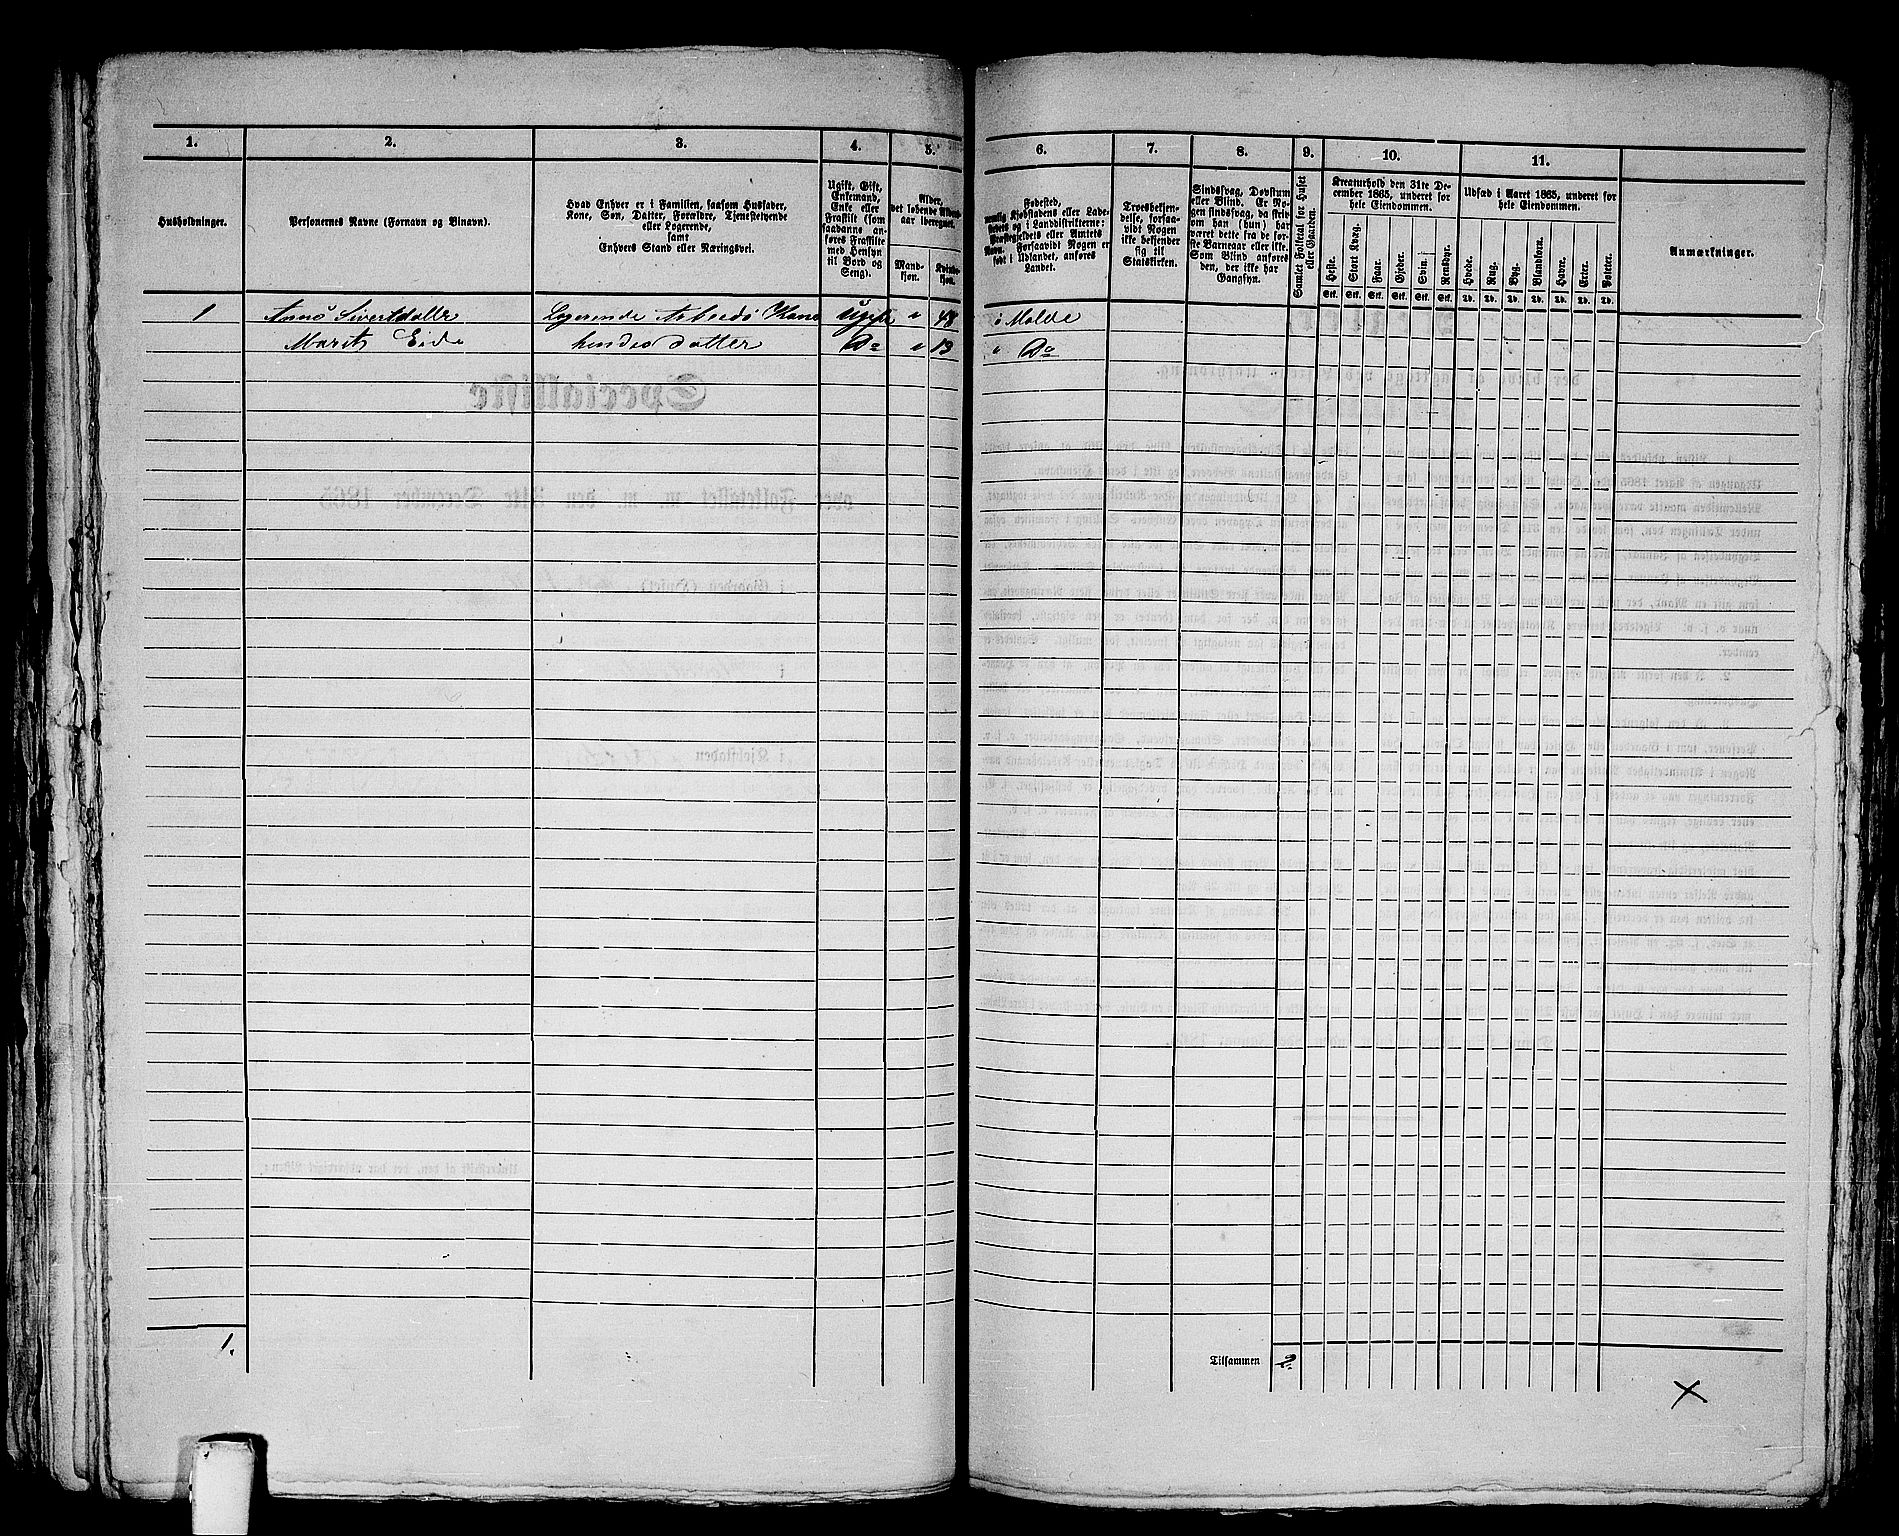 1. 2. 3. 4. 5. 6. 7. 8. 9. 10. 11.
Husholdninger.
Personernes Navne (Fornavn og Binavn).
Hvad Enhver er i Familien, saasom Husfader,
Kone, Søn, Datter, Forældre, Tjenestetyende
eller Logerende,
samt
Enhvers Stand eller Næringsvei.
Ugift, Gift,
Enkemand,
Enke eller
Fraskilt (som
saadanne an-
føres Fraskilte
med Hensyn
til Bord og
Seng).
Alder,
det løbende Alders-
aar iberegnet.
Mand-
kjøn.
Kvinde-
kjøn.
Fødested,
nemlig Kjøbstadens eller Lade-
stedets og i Landdistrikterne:
Præstegjeldets eller Amtets
Navn. Forsaavidt Nogen er
født i Udlandet, anføres
Landet.
Troesbekjen-
delse, forsaa-
vidt Nogen
ikke bekjender
sig til
Statskirken.
Sindssvag, Døvstum
eller Blind. Er No-
gen sindssvag, da skriv
om han (hun) har
været dette fra de før-
ste Barneaar eller ikke.
Som Blind anføres
den, der ikke har
Gangsyn.
Samlet Folketal for Huset
eller Gaarden.
Kreaturhold den 31te De-
cember 1865, underet for
hele Eiendommen.
Heste. Stort Kvæg. Faar. Gjeder. Svin. Rensdyr.
Stk. Stk. Stk. Stk. Stk. Stk.
Udsæd i Aaret 1865, underet for
hele Eiendommen.
Hvede. Rug. Byg. Blandkorn. Havre. Erter. Poteter.
Td. Td. Td. Td. Td. Td. Td.
Anmærkninger.
1 Sivertdatter Logerende Arbeids Kone Ugift " 48 i Molde
Marit Eide hendes datter Do " 13 " Do
1.
Tilsammen 2